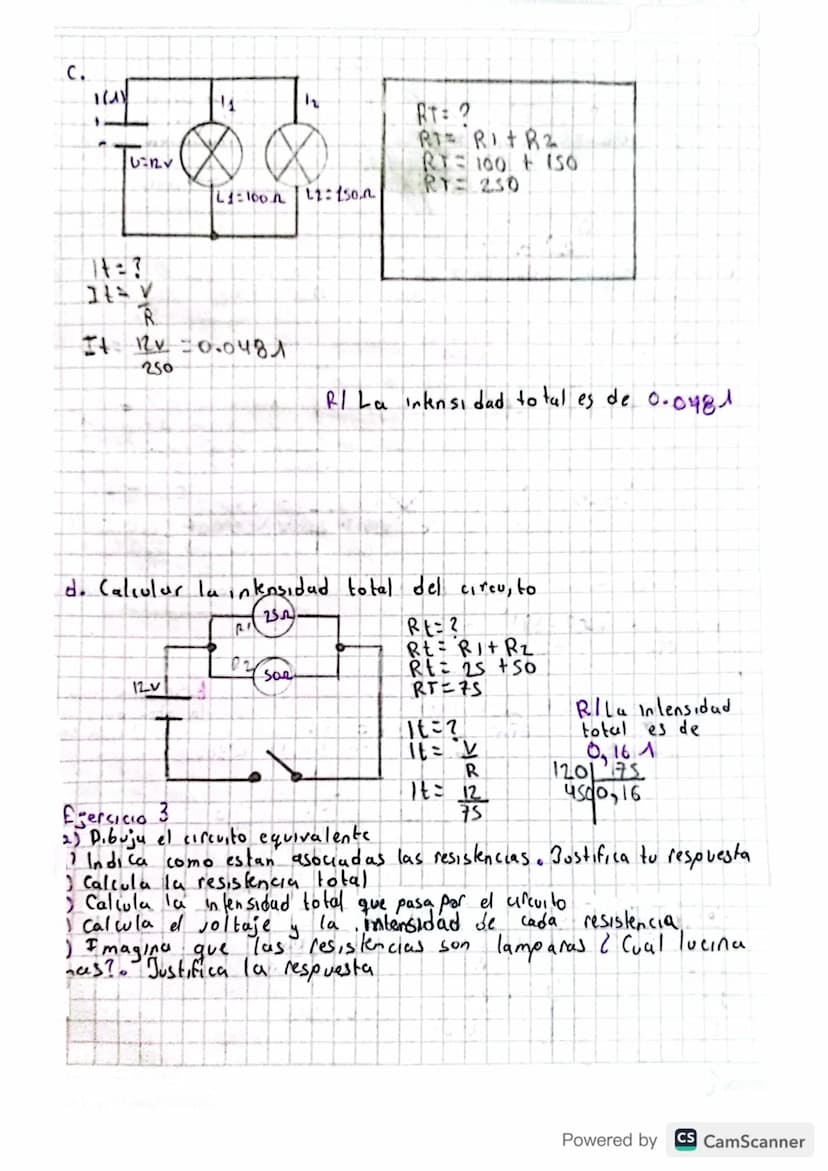 C.
I(A)
I1
I2
U=12V
L1=100Ω
L2=150Ω
RT= ?
RT= R1 + R2
RT= 100 + 150
RT= 250
It = ?
It = V
R
It 12v = 0.048A
250
R/ La intensidad total es de 0.048A
d. Calcular la intensidad total del circuito
R1
25Ω
50Ω
12V
Rt= ?
Rt= R1 + R2
Rt= 25 + 50
RT=75
It=?
It= V
R
It= 12
75
R/La intensidad
total es de
0,16 A
120 75
450 0,16
Ejercicio 3
2) Dibuja el circuito equivalente
) Indica como estan asociadas las resistencias. Justifica tu respuesta
) Calcula la resistencia total
) Calcula la intensidad total que pasa por el circuito
) Calcula el voltaje y la intensidad de cada resistencia
) Imagina que las resistencias son lamparas ¿ Cual lucina
mas?. Justifica la respuesta
Powered by CS CamScanner